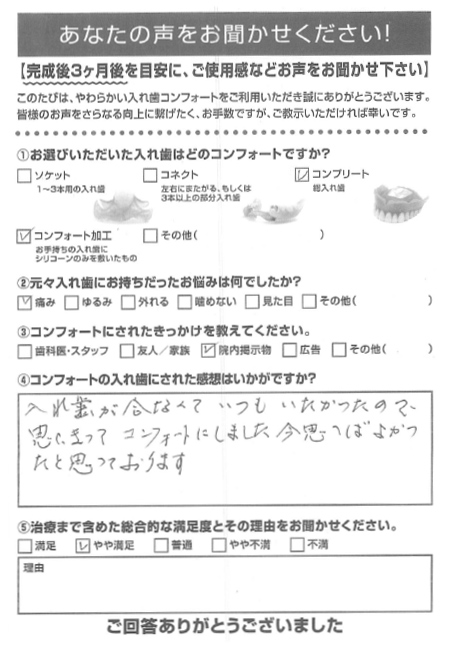 あなたの声をお聞かせください!
【完成後3ヶ月後を目安に、ご使用感などお声をお聞かせ下さい】
このたびは、やわらかい入れ歯コンフォートをご利用いただき誠にありがとうございます。
皆様のお声をさらなる向上に繋げたく、お手数ですが、ご教示いただければ幸いです。
①お選びいただいた入れ歯はどのコンフォートですか?
□ソケット □コネクト ☑コンプリート
1〜3本用の入れ歯 左右にまたがる、もしくは 総入れ歯
3本以上の部分入れ歯
☑コンフォート加工 □その他( )
お手持ちの入れ歯に
シリコーンのみを敷いたもの
②元々入れ歯にお持ちだったお悩みは何でしたか?
☑痛み □ゆるみ □外れる □噛めない □見た目 □その他( )
③コンフォートにされたきっかけを教えてください。
□歯科医・スタッフ □友人/家族 ☑院内掲示物 □広告 □その他( )
④コンフォートの入れ歯にされた感想はいかがですか?
入れ歯が合なくて いつも いたかったので、
思い立って コンフォートにしました 今思えばよかっ
たと思っております
⑤治療まで含めた総合的な満足度とその理由をお聞かせください。
□満足 ☑やや満足 □普通 □やや不満 □不満
理由
ご回答ありがとうございました